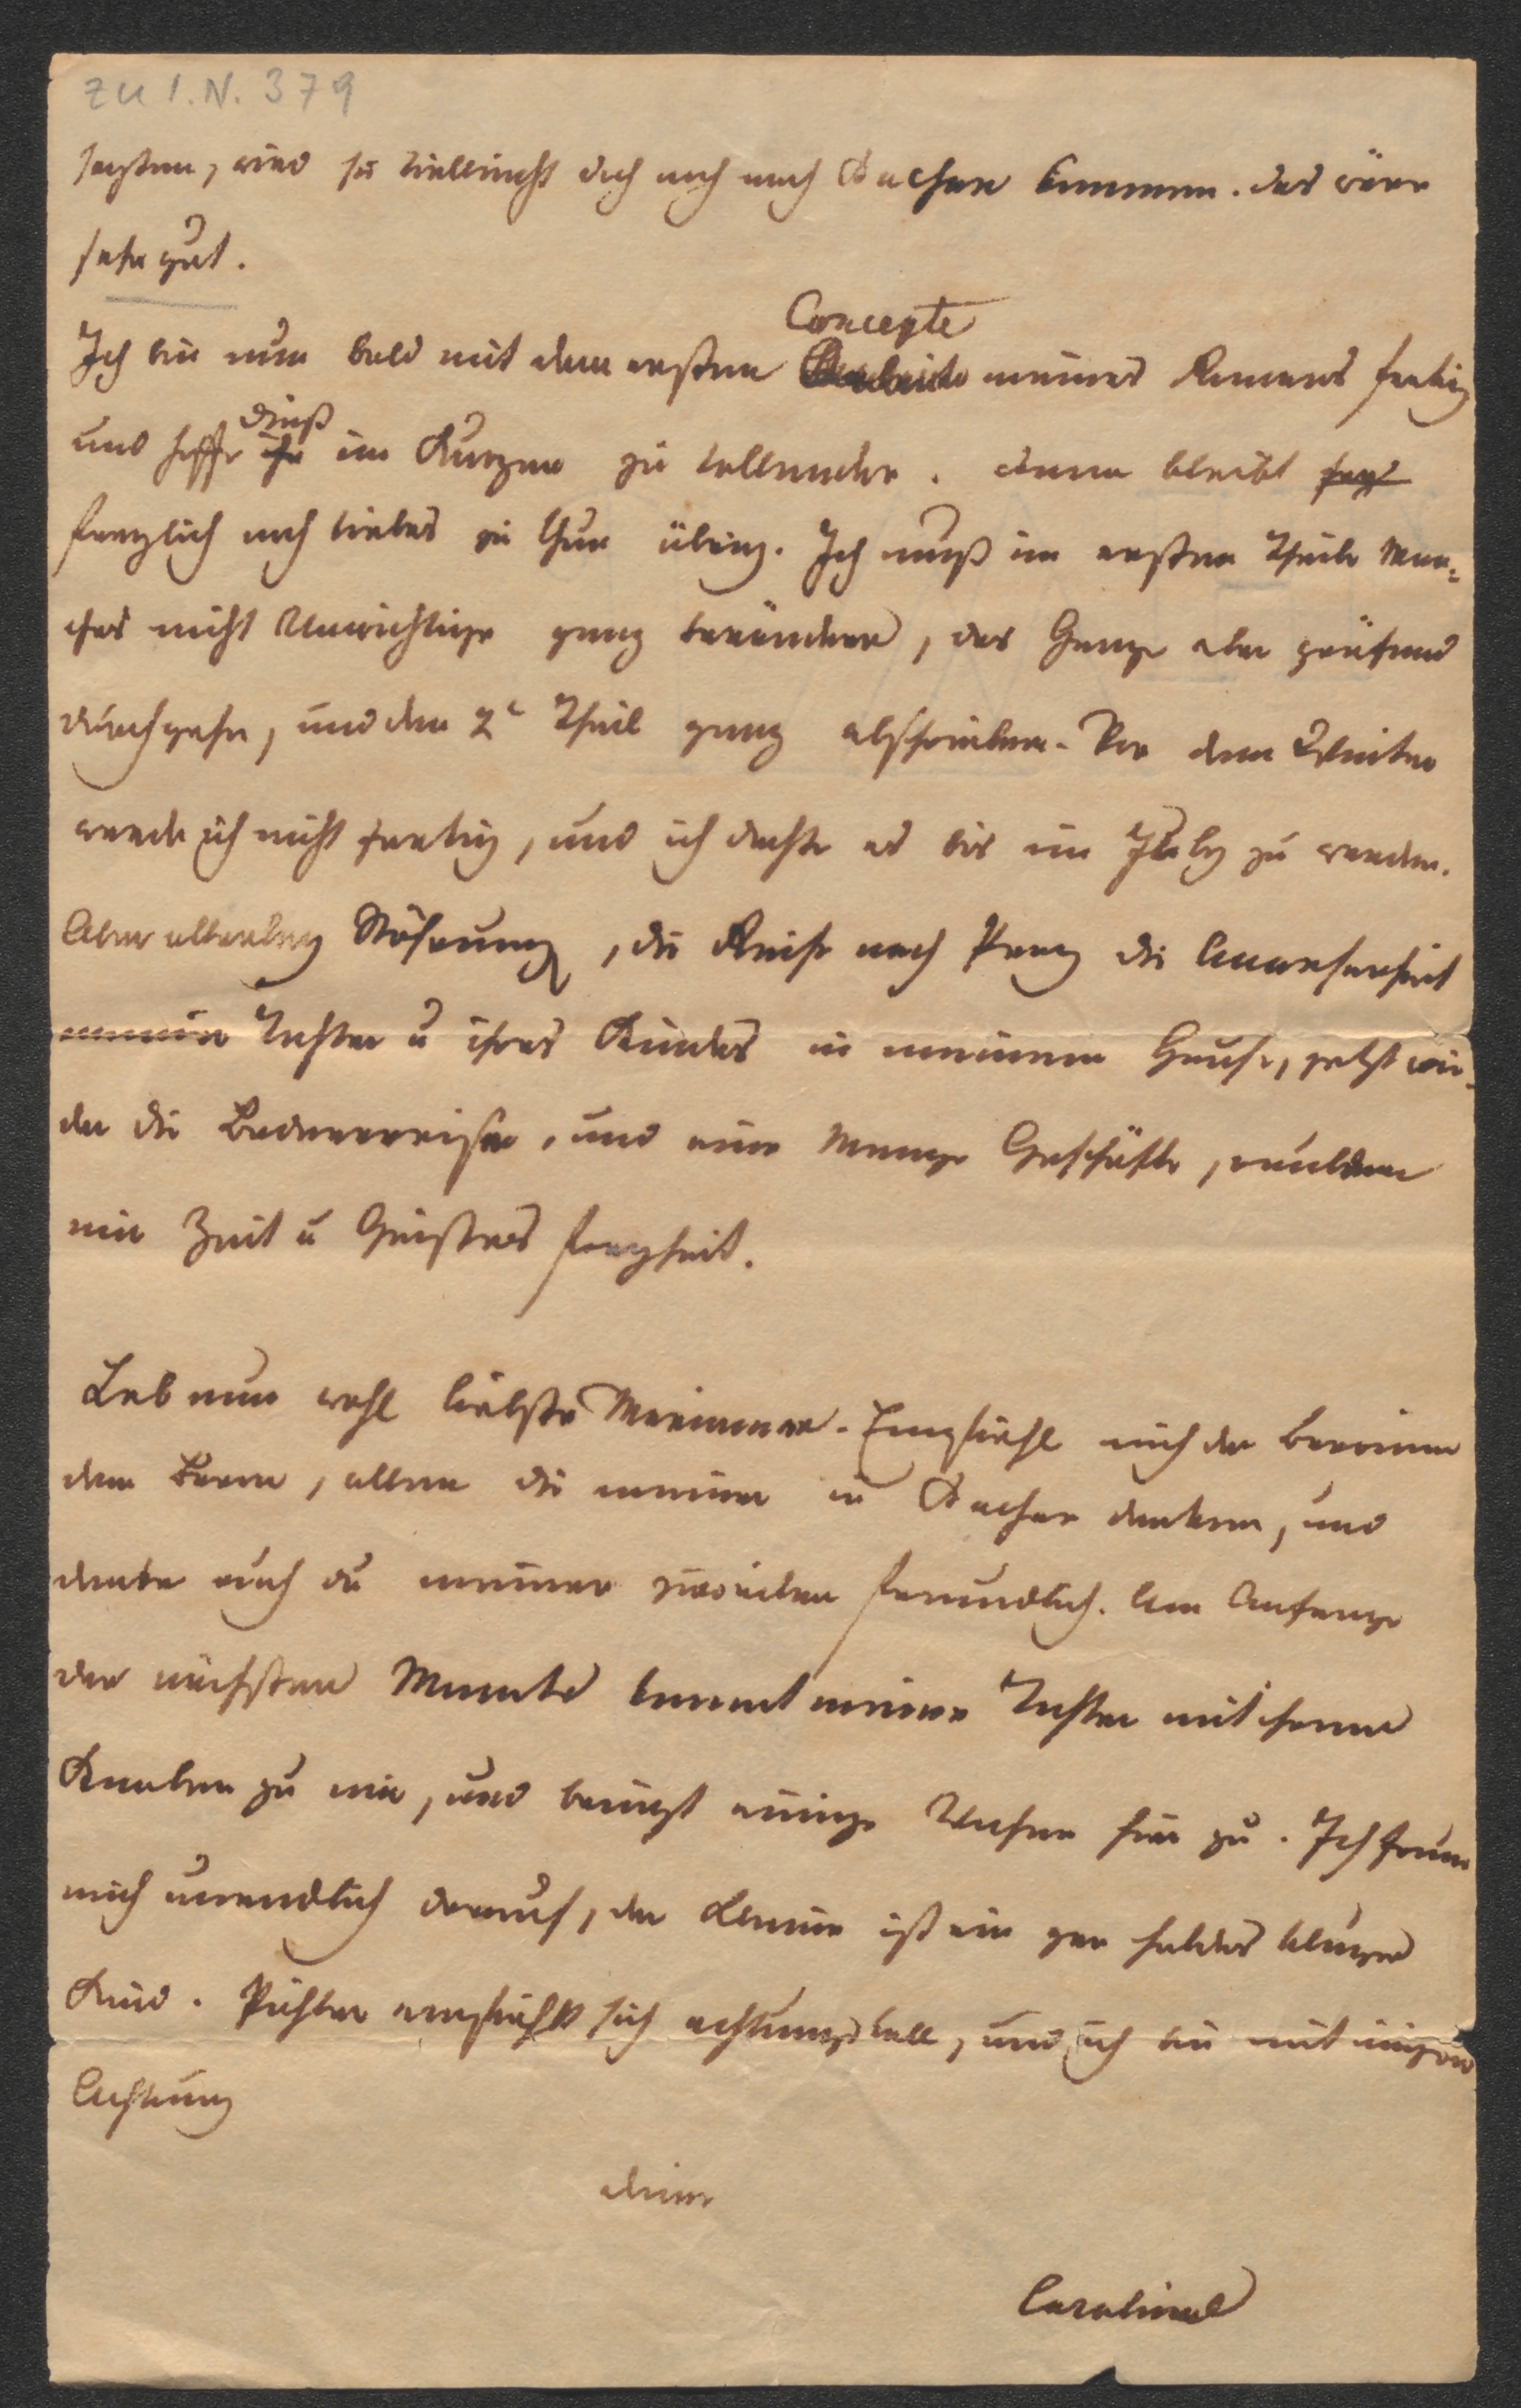 zu I.N. 379
sagten, wird sie vielleicht doch noch nach Aachen kommen. das wäre
sehr gut.
Concepte
Ich bin nun bald mit dem ersten meines Romans fertig
dieß
und hoffe ihn im Kurzen zu vollenden. dann bleibt
freylich noch vieles zu thun übrig. Ich muß im ersten Theile Man-
ches nicht Unwichtige ganz verändern, das Ganze aber prüfend
durchgehn, und den 2t Theil ganz abschreiben. Vor dem Winter
werde ich nicht fertig, und ich dachte es bis im July zu werden.
Aber allerley Störung, die Reise nach Prag die Anwesenheit
meiner Tochter u ihres Kindes in meinem Hause, jetzt wie-
der die Badnerreise, und eine Menge Geschäfte, rauben
mir Zeit u Geistes freyheit.
Leb nun wohl liebste Marianne. Empfiehl mich der Baronin
dem Baron, allen die meiner in Aachen denken, und
denke auch du meiner zuweilen freundlich. Am Anfange
des nächsten Monats kommt meine Tochter mit ihrem
Knaben zu mir, und bringt einige Wochen hier zu. Ich freue
mich unendlich darauf, der Kleine ist ein gar holdes kluges
Kind. Pichler empfiehlt sich achtungsvoll, und ich bin mit inniger
Achtung
deine
Caroline